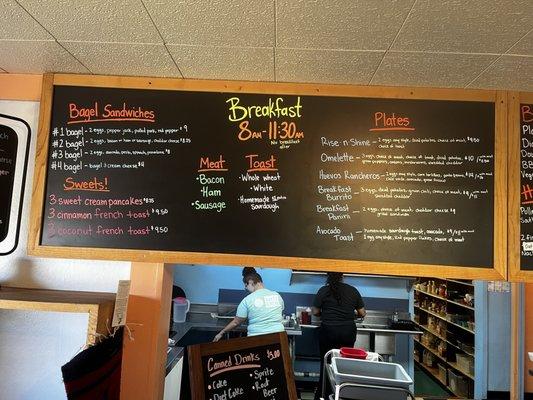 Bagel Sandwiches
#1 bagel - 2 eggs, pepper jack, pulled pork, red pepper $9
#2 bagel - 2 eggs, bacon
#3 bagel - 2 eggs, avocado, pesto,
#4 bagel - bagel & cream cheese $4
Sweets!
3 sweet cream pancakes $8.75
3 cinnamon french toast $9.50
3 coconut french toast $9.50
Breakfast
8am-11:30am
No breakfast after
Meat
Bacon
Ham
Sausage
Toast
Whole wheat
White
Homemade Sourdough
Plates
Rise n Shine - 2 eggs any style, fried potatoes, choice of meat $9.50
Omelette - 3 eggs, choice of meat, choice of toast, fried potatoes $10
Huevos Rancheros -
Breakfast Burrito - 3 eggs, fried potatoes, green chili, choice of meat, cheddar
Breakfast Panini - 2 eggs, choice of meat, cheddar cheese $9
Avocado Toast - homemade sourdough toast, avocado,
2 eggs any style, red pepper flakes, choice of meat
Canned Drinks
$3.00
Coke
Diet Coke
Sprite
Root Beer